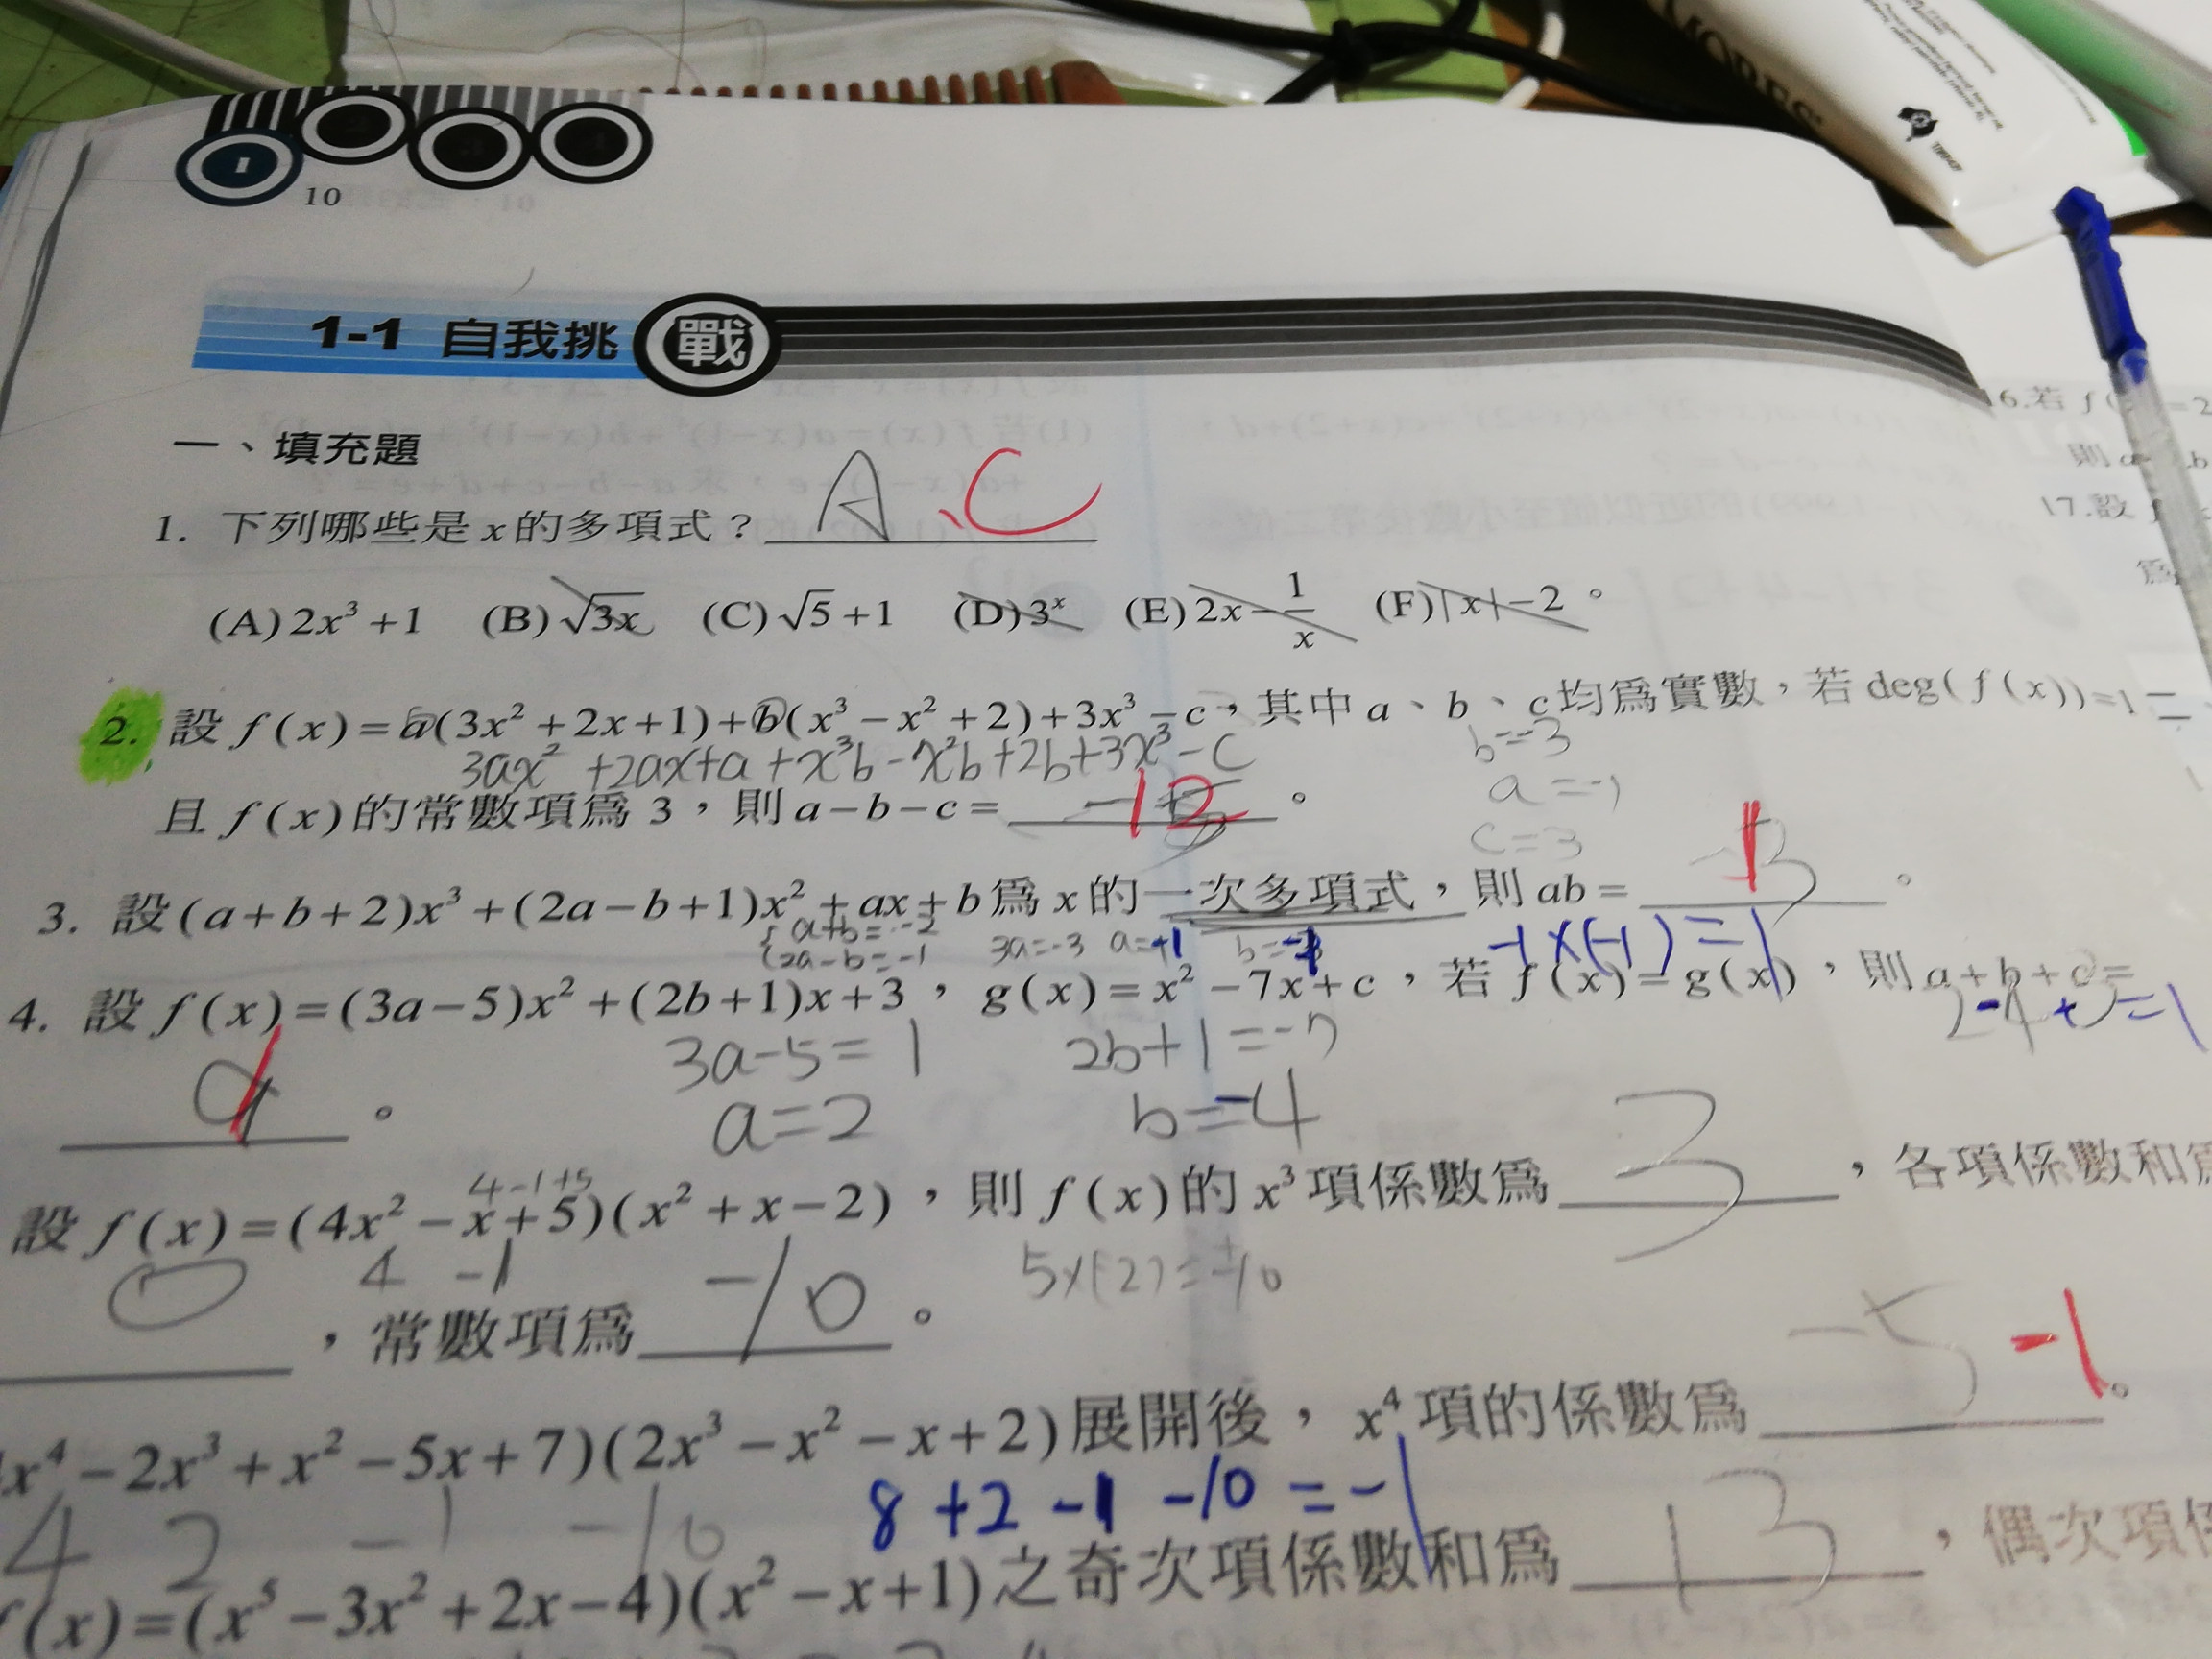 MORES
1
10
1-1 自我挑戰
一、填充題
1. 下列哪些是x的多項式？ A、C
(A) 2x³+1 (B) √3x (C) √5+1 (D) 3ˣ (E) 2x-1/x (F) |x|-2。
2. 設f(x)=a(3x²+2x+1)+b(x³-x²+2)+3x³-c，其中a、b、c均為實數，若deg(f(x))=1
3ax²+2ax+a+x³b-x²b+2b+3x³-c
b=-3
且f(x)的常數項為3，則a-b-c= 12 。
a=-1
c=3
3. 設(a+b+2)x³+(2a-b+1)x²+ax+b為x的一次多項式，則ab= 1 。
a+b=-2
2a-b=-1
3a=-3 a=-1 b=-1
-1×(-1)=1
4. 設f(x)=(3a-5)x²+(2b+1)x+3，g(x)=x²-7x+c，若f(x)=g(x)，則a+b+c=
1 。
3a-5=1 2b+1=-7
2-4+3=1
a=2 b=-4
4-1+5
設f(x)=(4x²-x+5)(x²+x-2)，則f(x)的x³項係數為 3 ，各項係數和為
4 -1
5×(-2)=-10
0 ，常數項為 -10 。
x⁴-2x³+x²-5x+7)(2x³-x²-x+2)展開後，x⁴項的係數為 -5 -1 。
4 2 -1 -10
8+2-1-10=-1
f(x)=(x⁵-3x²+2x-4)(x²-x+1)之奇次項係數和為 13 ，偶次項係
16.若f( =2
則a b
17.設f
為